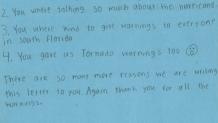 2. You where talking so much about the hurricane
3. You where kind to give warnings to everyone
in South Florida
4. You gave us Tornado warnings too
There are so many more reasons we are writing
this letter to you. Again thank you for all the
warnings.